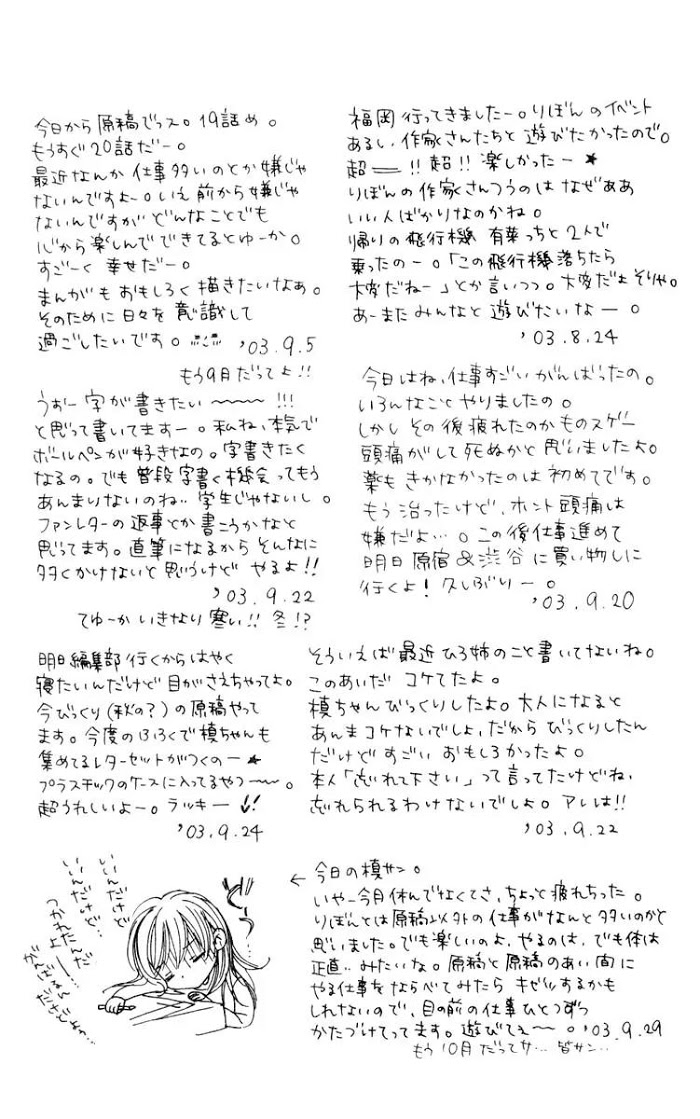 福岡行ってきましたー。りぼんのイベント
あるし、作家さんたちと遊びたかったので。
超――!!超!!楽しかったー★
りぼんの作家さんつうのはなぜああ
いい人ばかりなのかね。
帰りの飛行機 有葉っちと2人で
乗ったのー。「この飛行機落ちたら
大変だねー」とか言いつつ。大変だよそりゃ。
あーまたみんなと遊びたいなー。
'03.8.24
今日から原稿でっス。19話め。
もうすぐ20話だー。
最近なんか仕事多いのとか嫌じゃ
ないんですよー。いえ前から嫌じゃ
ないんですがどんなことでも
心から楽しんでできてるとゆーか。
すごーく幸せだー。
まんがもおもしろく描きたいなぁ。
そのために日々を意識して
過ごしたいです。
'03.9.5
もう9月だってよ!!
今日はね、仕事すごいがんばったの。
いろんなことやりましたの。
しかしその後疲れたのかものスゲー
頭痛がして死ぬかと思いましたよ。
薬もきかなかったのは初めてです。
もう治ったけど、ホント頭痛は
嫌だよ…。この後仕事進めて
明日原宿&渋谷に買い物しに
行くよ!久しぶりー。
'03.9.20
うおー字が書きたい〜〜〜!!!
と思って書いてますー。私ね、本気で
ボールペンが好きなの。字書きたく
なるの。でも普段字書く機会ってもう
あんまりないのね… 学生じゃないし。
ファンレターの返事とか書こうかなと
思ってます。直筆になるからそんなに
多くかけないと思うけどやるよ!!
'03.9.22
てゆーかいきなり寒い!!冬!?
そういえば最近ひろ姉のこと書いてないね。
このあいだコケてたよ。
槙ちゃんびっくりしたよ。大人になると
あんまコケないでしょ、だからびっくりしたん
だけどすごいおもしろかったよ。
本人「忘れて下さい」って言ってたけどね、
忘れられるわけないでしょ。アレは!!
'03.9.22
明日編集部行くからはやく
寝たいんだけど目がさえちゃってよ。
今びっくり(秋の?)の原稿やって
ます。今度のふろくで槙ちゃんも
集めてるレターセットがつくのー★
プラスチックのケースに入ってるやつ〜〜。
超うれしいよー。ラッキー!!
'03.9.24
いいんだけど
いいんだけど…
つかれたんだ
よー…
がんばるん
だけどねっ…
← 今日の槙サン。
いやー今月休んでなくてさ、ちょっと疲れちった。
りぼんとは原稿以外の仕事がなんと多いのかと
思いました。でも楽しいのよ、やるのは、でも体は
正直…みたいな。原稿と原稿のあい間に
やる仕事をならべてみたらキゼツするかも
しれないので、目の前の仕事ひとつずつ
かたづけてってます。遊びてぇ〜。'03.9.29
もう10月だってサ…皆サン…